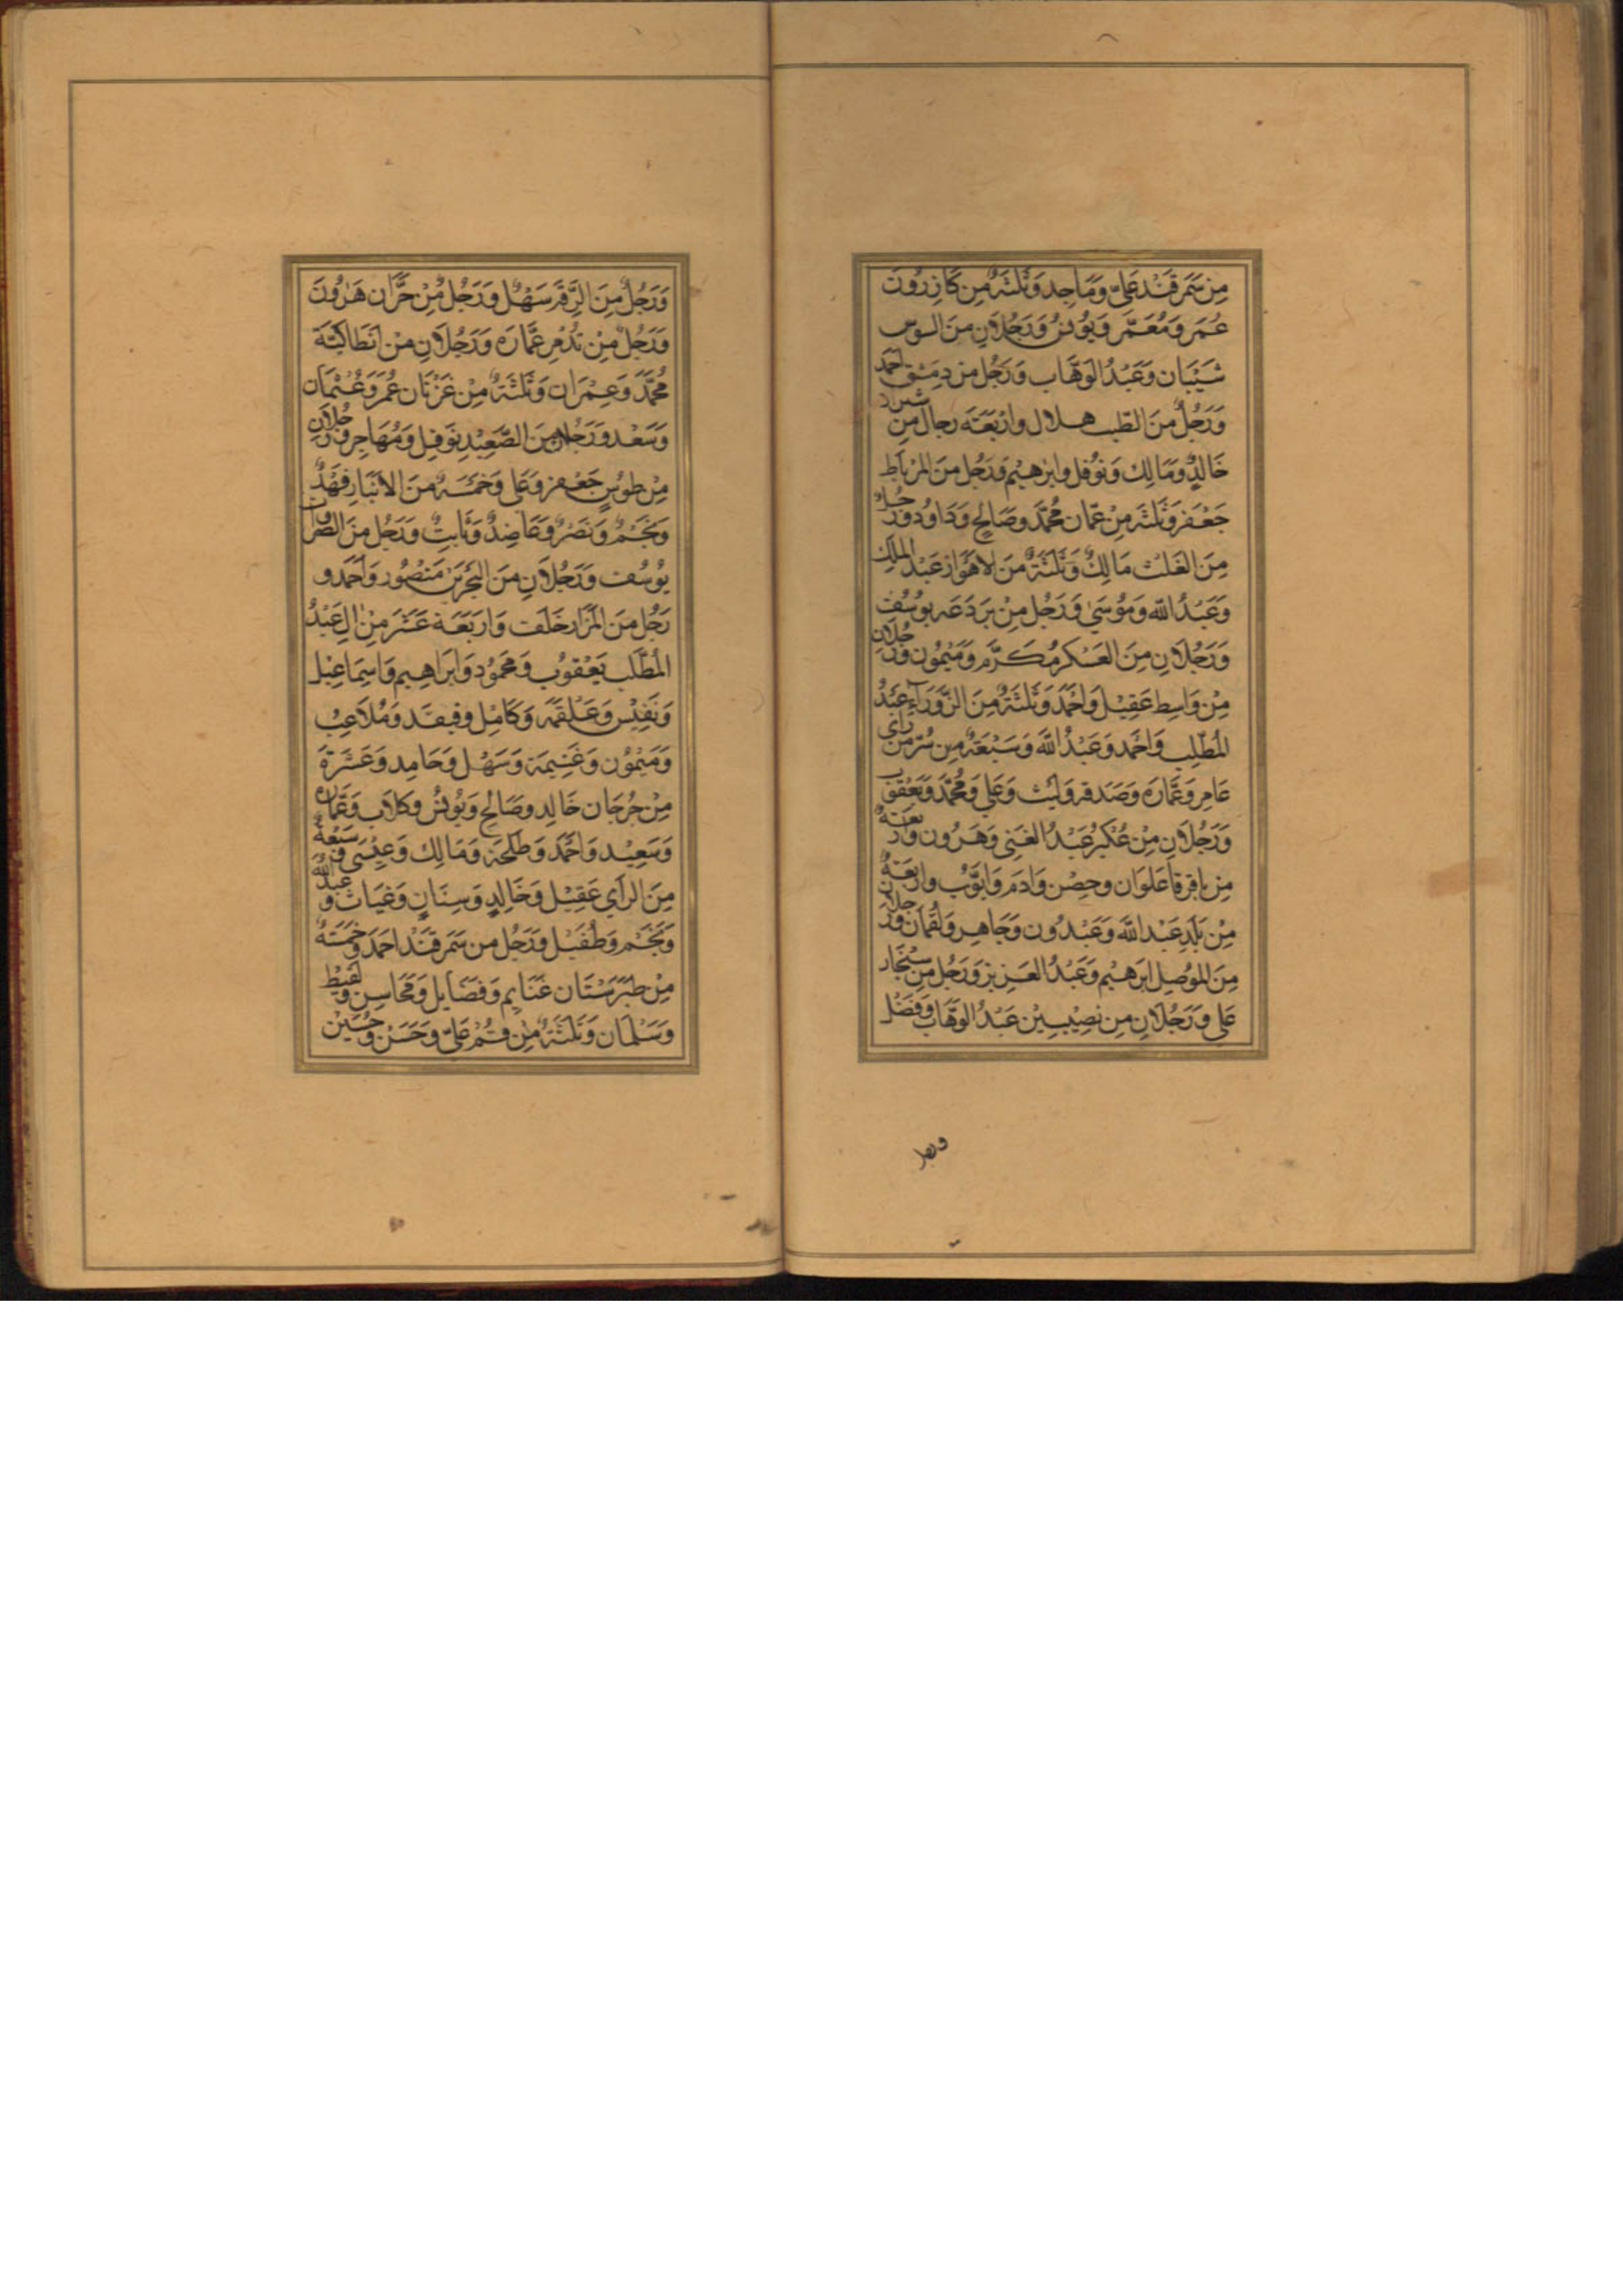 مِن سَمَرقَند عَلِيّ وَمَاجِد وَثَلثَةٌ مِن كَازِرُونَ
عُمَر وَمُعَمَّر وَيُونُسُ وَرَجُلَانِ مِنَ السوس
شَيْبَان وَعَبْدُ الوَهَّاب وَرَجُل من دِمَشق اَحمَد
وَرَجُلٌ مِنَ الطيب هلال واَرْبَعَة رجال مِن شيراز
خَالِدٌ وَمَالِك وَنَوفل وابرهيم وَرَجُل مِنَ المرْبَاط
جَعْفَر وَثَلثَة مِنْ عمّان مُحَمَّد وصَالح وَدَاوُد وَرَجُلٌ
مِنَ مَالِكٌ وَثَلثَةٌ مِنَ الاهْوَاز عَبْد الملك
وَعَبْدُ اللّه وَمُوسَى وَرَجُل مِنْ بَردَعَه يوسُف
وَرَجُلَانِ مِنَ العَسْكر مُكَرَّم وَمَيْمُون وَرَجُلَان
مِنْ وَاسِط عَقِيْل وَاَحْمَد وَثَلثَةٌ مِنَ الزَّوْرَآءِ عَبْدُ
المُطّلِب وَاَحْمَد وَعَبْدُ اللّه وَسَبْعَةٌ مِن سُرّ مَن رَاَى
عَامِر وَعَمَّارَه وَصَدقه وَليْث وَعَلي وَمُحَمَّد وَيَعْقُوب
وَرَجُلَانِ مِنْ عُكْبَر عَبْدُ الغَنِى وَهرُون وَاَربَعَةٌ
مِن باقرقا عَلوَان وحِصْن وَادَم وَايّوُب واربَعَةٌ
مِنْ بَلَدٍ عَبْد اللّه وَعَبْدُون وَجَاهِر وَلُقْمَان وَرَجُلَان
مِنَ المَوْصِل ابرَهيْم وَعَبْدُ العَزِيز وَرَجُل مِنْ سنْجَار
عَلي وَرَجُلَانِ مِن نَصِيبِيْن عَبْدُ الوَهَّاب وَفَضْل
ورجل
وَرَجُلٌ مِنَ الرَّقّة سَهْل وَرَجُل مِنْ حَرَّان هَرُونَ
وَرَجُلٌ مِنْ تَدْمر عَمَّارَه وَرَجُلَانِ مِنْ انْطَاكيَّة
مُحَمَّد وَعِمْرَان وَثَلثَةٌ مِنْ غَزْنَان عُمَر وَعُثْمَان
وَسَعْد وَرَجُلان مِنَ الصَّعِيْدِ نَوفِل وَمُهَاجر وَرَجُلَان
مِنْ طوُسٍ جَعْفر وَعَلى وَخَمْسَةٌ مِنَ الاَنْبَار فَهْدٌ
وَنَجْمٌ وَنَصْرٌ وَعَاضِدٌ وَثَابتٌ وَرَجُل مِنَ
يُوسُف وَرَجُلَانِ مِنَ البَحْرَين مَنْصُور وَاَحْمَد و
رَجُل مِنَ المَزَار خَلَف وَارْبَعَة عَشَرَ مِنْ الِ عَبْدُ
المُطّلب يَعْقوُب وَمحمُود وَابرَاهِيم وَاِسمَاعِيْل
وَنَفِيْس وَعَلْقَمَه وَكَامِل وفيفد وَمُلَاعِبْ
وَمَيْموُن وَغَنِيمَة وَسَهْل وَحَامِد وَعَشَرَةَ
مِنْ جُرْجَان خَالِد وصَالح وَيُونُسُ وكلَاب وَعَمَّارَه
وَسَعِيْد وَاَحْمَد وَطَلحَة وَمَالِك وَعِيْسَى وَسَبْعَةٌ
مِنَ الراي عَقِيْل وَخَالِدٍ وَسِنَانٍ وَغيَاث وعَبدُ اللّه
وَنَجْم وَطُفَيْل وَرَجُل مِن سَمَرقَنْد احمَد وَخَمْسَةٌ
مِنْ طَبَرَسْتَان غنَايم وَفَضَايل وَمَحَاسِن وَلَقِيْط
وَسَلْمَان وَثَلثَةٌ مِنْ قُمْ عَلِيّ وحَسَنْ وَحُسَيْن